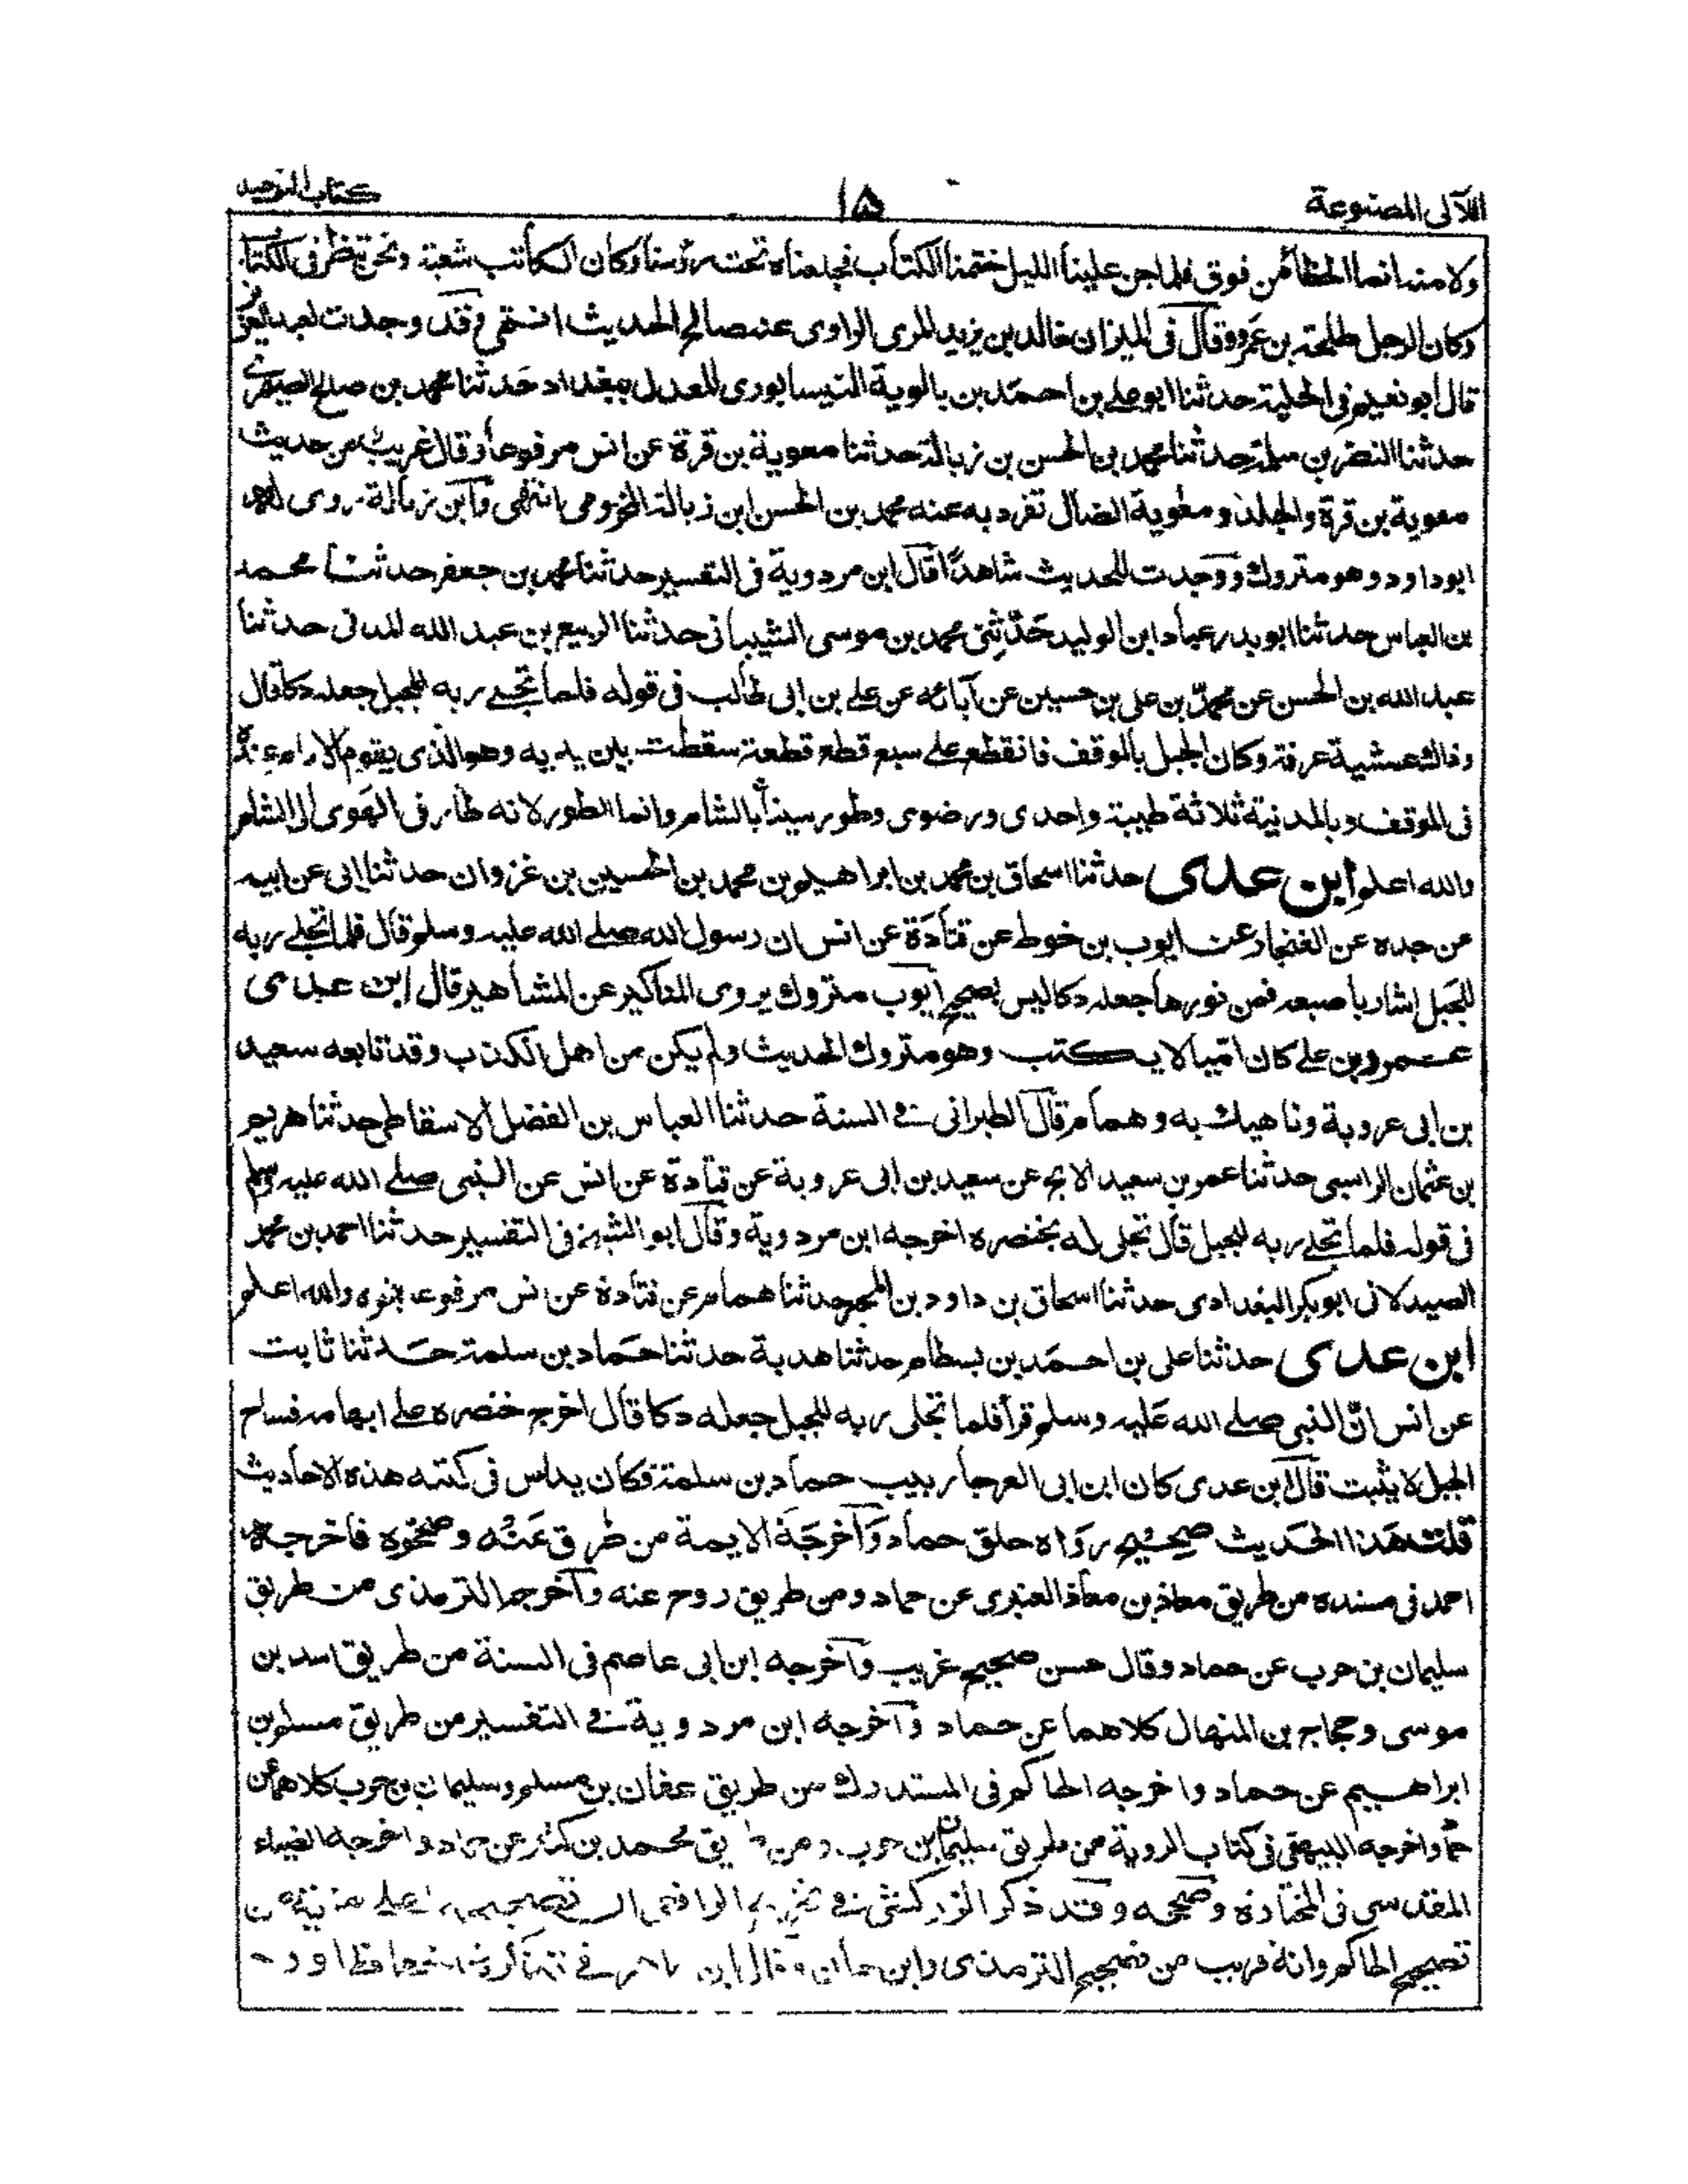 اللآلى المصنوعة
١٥
كتاب التوحيد
ولا منه انما الخطأ من فوق فلما جن علينا الليل ختمنا الكتاب فجعلناه تحت رؤسنا وكان الكاتب شعبة ونحن ننظر فى الكتاب
وكان الرجل طلحة بن عمرو وقال فى الميزان خالد بن يزيد المرى الراوى عنه صالح الحديث انتهى وقد وجدت لعبد العزيز
قال أبو نعيم فى الحلية حدثنا ابو على بن احمد بن بالوية النيسابورى المعدل ببغداد حدثنا محمد بن صالح الصيمرى
حدثنا النضر بن سلمة حدثنا محمد بن الحسن بن زبالة حدثنا معوية بن قرة عن انس مرفوعا وقال غريب من حديث
معوية بن قرة والجلد ومعوية الضال تفرد به عنه محمد بن الحسن ابن زبالة المخزومى انتهى وابن زبالة روى له
ابوداود وهو متروك ووجدت للحديث شاهدًا قال ابن مردوية فى التفسير حدثنا محمد بن جعفر حدثنا محمد
بن العباس حدثنا ابو بدر عباد ابن الوليد حدثنى محمد بن موسى الشيبانى حدثنا الربيع بن عبد الله المدنى حدثنا
عبد الله بن الحسن عن محمد بن على بن حسين عن آبائه عن على بن ابى طالب فى قوله فلما تجلى ربه للجبل جعله دكا قال
وذالك عشية عرفة وكان الجبل بالموقف فانقطع على سبع قطع قطعة سقطت بين يديه وهو الذى يقوم الامام عنده
فى الموقف وبالمدنية ثلاثة طيبة واحدى ورضوى وطور سينا بالشام وانما الطور لانه طار فى الهوى الى الشام
والله اعلم ابن عدى حدثنا اسحاق بن محمد بن ابراهيم بن محمد بن الحسين بن غزوان حدثنا ابى عن ابيه
عن جده عن الغنجار عن ايوب بن خوط عن قتادة عن انس ان رسول الله صلے الله عليه وسلم قال فلما تجلے ربه
للجبل اشار باصبعه فمن نورها جعله دكا ليس بصحيح ايوب متروك يروى المناكير عن المشاهير قال ابن عدى
عمرو بن على كان اميا لا يكتب وهو متروك الحديث ولم يكن من اهل الكذب وقد تابعه سعيد
بن ابى عروبة وناهيك به وهمام قال الطبرانى فے السنة حدثنا العباس بن الفضل الاسقاطى حدثنا هريم
بن عثمان الراسبى حدثنا عمر بن سعيد الابح عن سعيد بن ابى عروبة عن قتادة عن انس عن النبى صلے الله عليه وسلم
فى قوله فلما تجلے ربه للجبل قال تجلى له بخنصره اخرجه ابن مردوية وقال ابو الشيخ فى التفسير حدثنا احمد بن محمد
الصيدلانى ابو بكر البغدادى حدثنا اسحاق بن داود بن المحبر حدثنا همام عن قتادة عن نس مرفوعا بنحوه والله اعلم
ابن عدى حدثنا على بن احمد بن بسطام حدثنا هدبة حدثنا حماد بن سلمة حدثنا ثابت
عن انس ان النبى صلے الله عليه وسلم قرأ فلما تجلى ربه للجبل جعله دكا قال اخرج خنصره على ابهامه فساح
الجبل لا يثبت قال ابن عدى كان ابن ابى العوجا ربيب حماد بن سلمة فكان يدلس فى كتبه هذه الاحاديث
قلت هذا الحديث صحيح رواه خلق حماد وآخرجه الايمة من طرق عنه وصححوه فاخرجه
احمد فى مسنده من طريق معاذ بن معاذ العنبرى عن حماد ومن طريق روح عنه وآخرجه الترمذى من طريق
سليمان بن حرب عن حماد وقال حسن صحيح غريب وآخرجه ابن ابى عاصم فى السنة من طريق اسد بن
موسى وحجاج بن المنهال كلاهما عن حماد وآخرجه ابن مردوية فے التفسير من طريق مسلم بن
ابراهيم عن حماد واخرجه الحاكم فى المستدرك من طريق عفان بن مسلم وسليمان بن حرب كلاهما عن
حماد واخرجه البيهقى فى كتاب الروية من طريق سليمان بن حرب ومن طريق محمد بن كثير عن حماد واخرجه الضياء
المقدسى فى المختارة وصححه وقد ذكر الزركشى فے تخريج الرافعى ان تصحيحه اعلى مزية من
تصحيح الحاكم وانه قريب من تصحيح الترمذى وابن حبان وقال ابن طاهر فے تذكرة الحفاظ